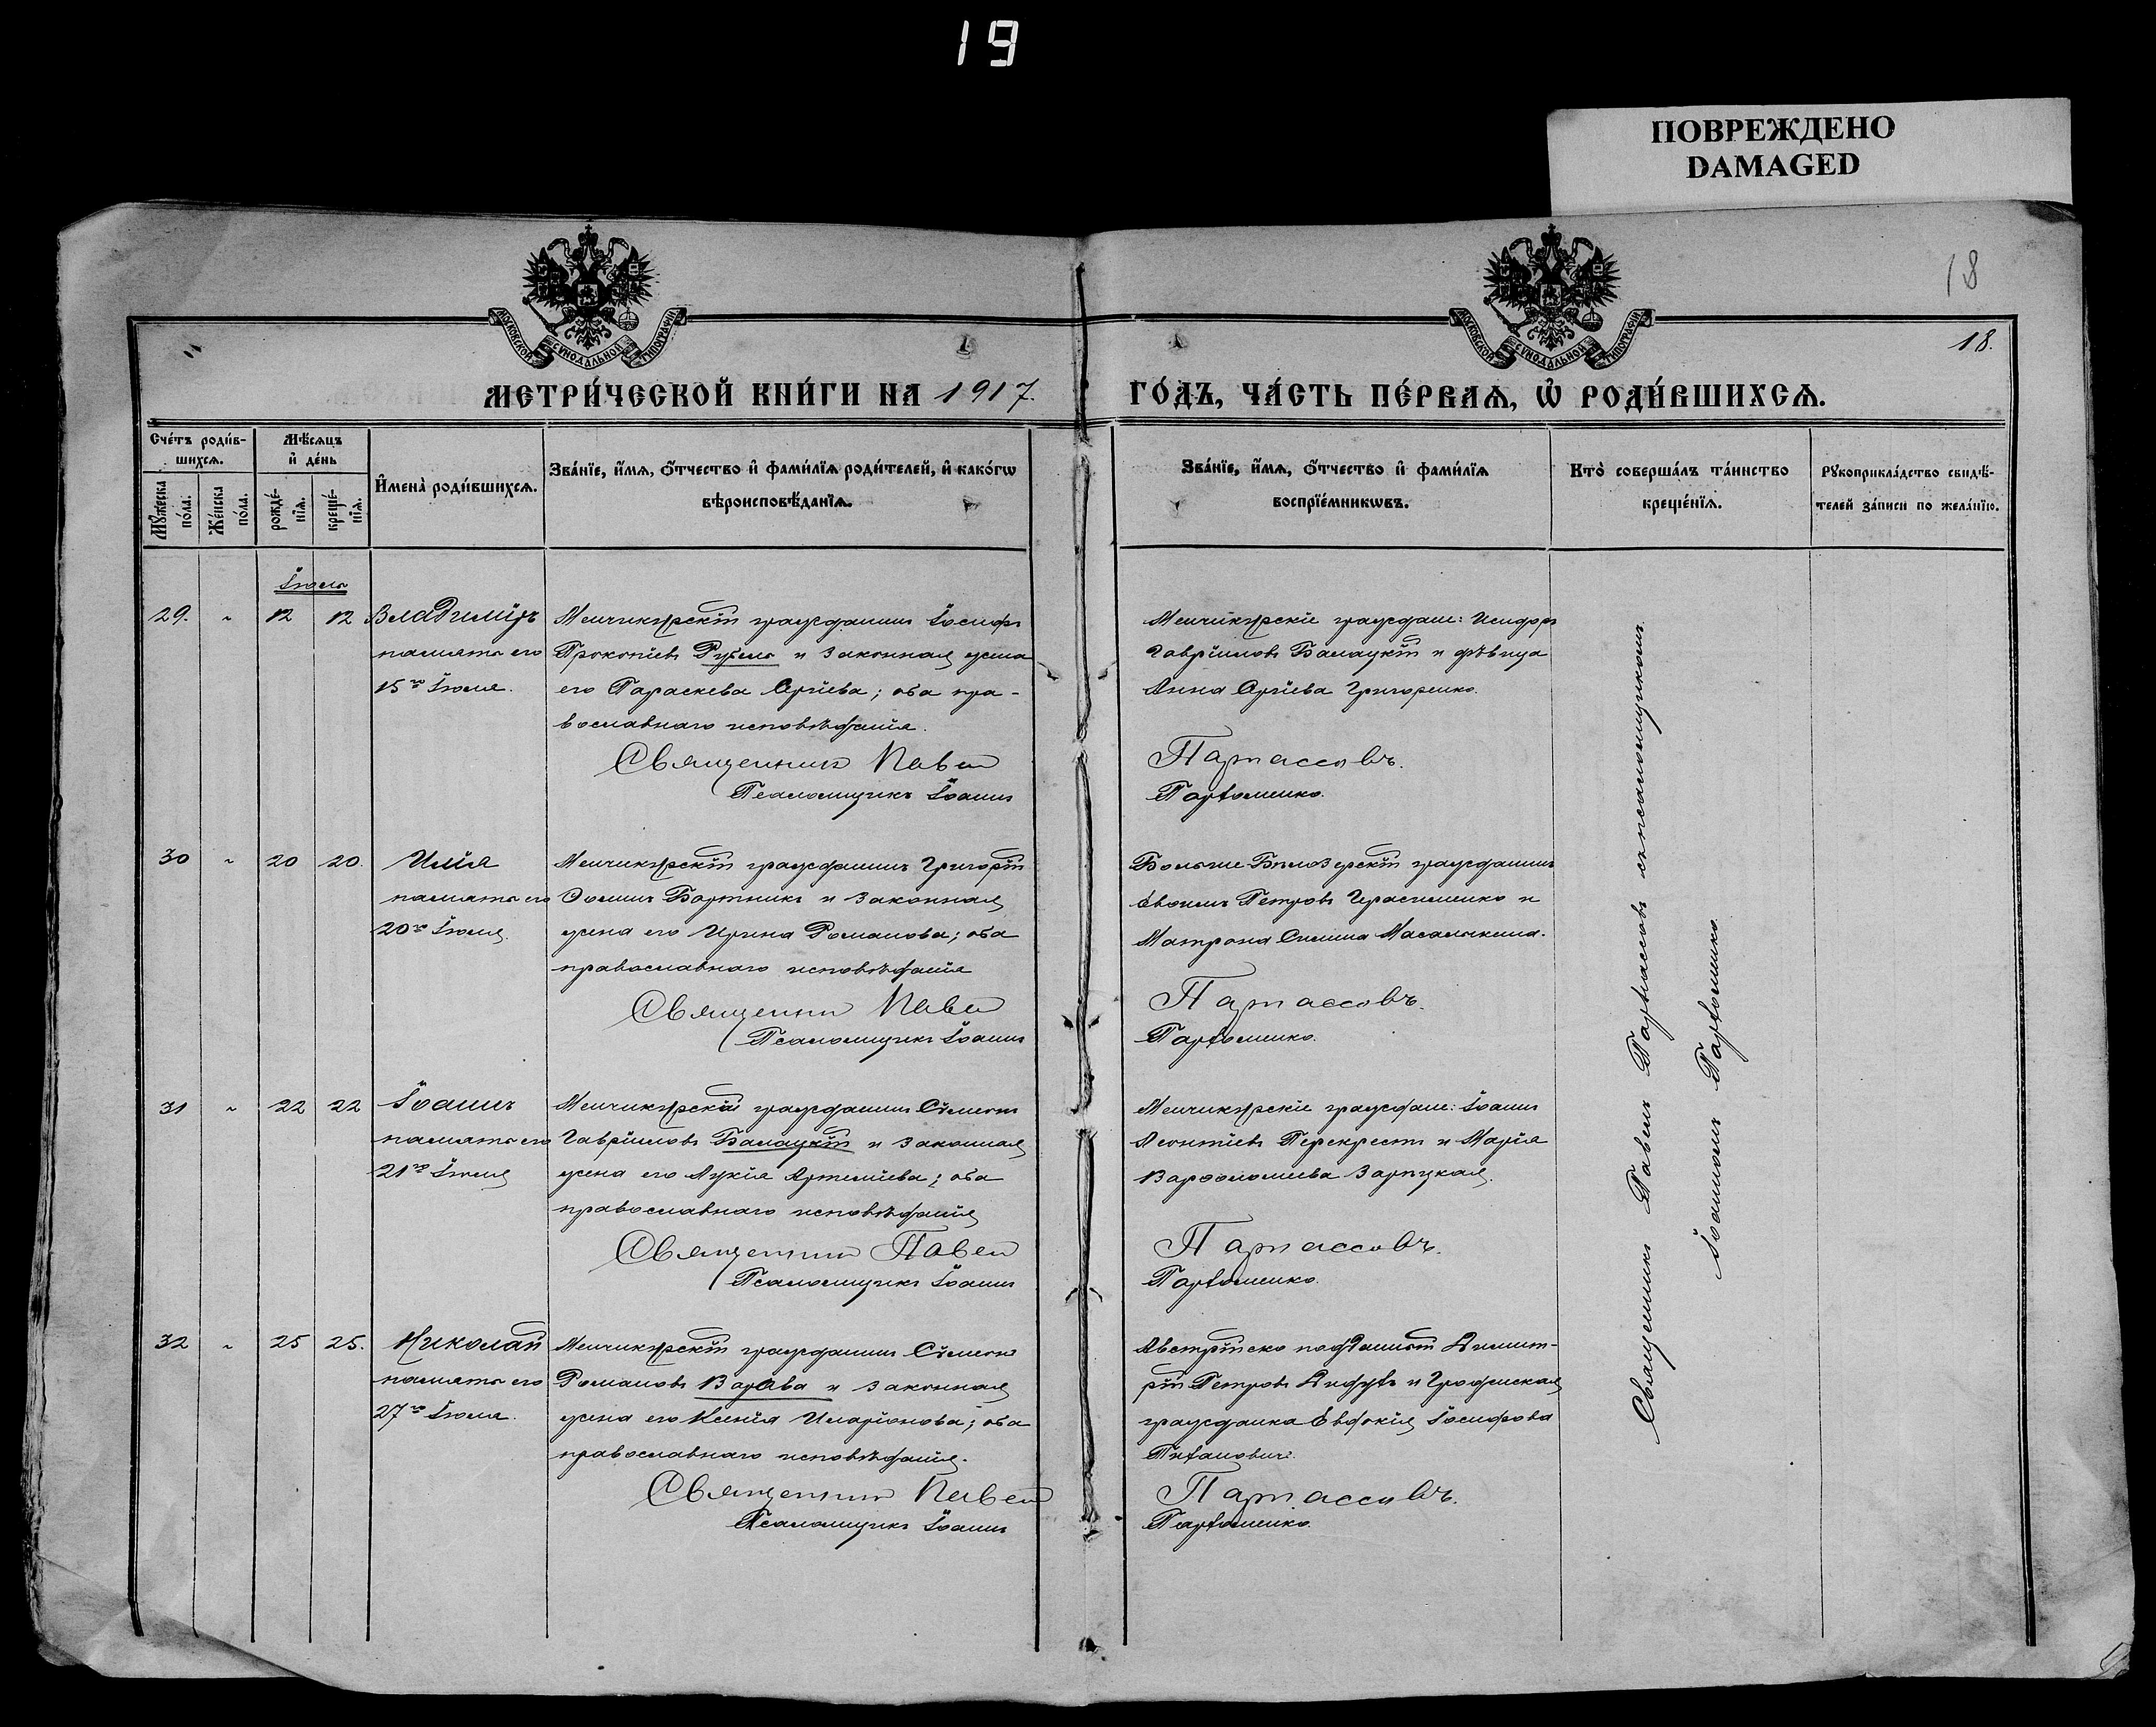 19
ПОВРЕЖДЕНО
DAMAGED
18
18.
МОСКОВСКОЙ СѴНОДАЛЬНОЙ ТИПОГРАФІИ
МОСКОВСКОЙ СѴНОДАЛЬНОЙ ТИПОГРАФІИ
МЕТРИ́ЧЕСКОЙ КНИ́ГИ НА 1917. ГО́ДЪ, ЧА́СТЬ ПЕ́РВАѦ, Ѽ РОДИ́ВШИХСѦ.
Сче́тъ роди́в-
шихсѧ.
Мꙋ́жеска по́ла.
Же́нска по́ла.
Мѣ́сѧцъ
и҆ де́нь
рожде́-
нїѧ.
креще́-
нїѧ.
И҆мена̀ роди́вшихсѧ.
Зва́нїе, и҆́мѧ, ѻ҆́тчество и҆ фами́лїѧ роди́телей, и҆ како́гѡ
вѣроисповѣ́данїѧ.
Зва́нїе, и҆́мѧ, ѻ҆́тчество и҆ фами́лїѧ
воспрїе́мникѡвъ.
Кто̀ соверша́лъ та́инство
креще́нїѧ.
Рꙋкоприкла́дство свидѣ́-
телей за́писи по жела́нїю.
Іюль
29. " 12 12 Владиміръ
память его
15го Іюля.
Менчикурскій гражданинъ Іосифъ
Прокопіевъ Рубель и законная жена
его Параскева Юріева; оба пра-
вославнаго исповѣданія.
Священникъ Павелъ
Псаломщикъ Іоаннъ
Менчикурскіе граждане: Исидоръ
Гавріиловъ Балацкій и дѣвица
Анна Юріева Григоренко.
Парнассовъ.
Пархоменко.
30 " 20 20. Илія
память его
20го Іюля.
Менчикурскій гражданинъ Григорій
Ѳоминъ Бортникъ и законная
жена его Ирина Романова; оба
православнаго исповѣданія
Священникъ Павелъ
Псаломщикъ Іоаннъ
Больше-Бѣлозерскій гражданинъ
Евѳимъ Петровъ Герасименко и
Матрона Симина Масалыкина.
Парнассовъ.
Пархоменко.
31 " 22 22 Іоаннъ
память его
21го Іюля
Менчикурскій гражданинъ Сѵмеонъ
Гавріиловъ Балацкій и законная
жена его Лукія Артеміева; оба
православнаго исповѣданія
Священникъ Павелъ
Псаломщикъ Іоаннъ
Менчикурскіе граждане: Іоаннъ
Леонтіевъ Перекрестъ и Марія
Варѳоломеева Зарицкая.
Парнассовъ.
Пархоменко.
32 " 25 25. Николай
память его
27го Іюля.
Менчикурскій гражданинъ Сѵмеонъ
Романовъ Варава и законная
жена его Ксенія Иларіонова; оба
православнаго исповѣданія.
Священникъ Павелъ
Псаломщикъ Іоаннъ
Австрійско подданный Димит-
рій Петровъ и Гродненская
гражданка Евдокія Іосифова
Парнассовъ.
Пархоменко.
Священникъ Павелъ Парнассовъ съ псаломщикомъ
Іоанномъ Пархоменко